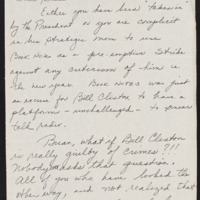 Either you have been taken in
by the President or you are complicit
in his strategic move to use
Book Notes as a pre-emptive strike
against any criticism of him in
the new year. Book Notes was just
an excuse for Bill Clinton to have a
platform - unchallenged - to
talk radio.
Brian, what if Bill Clinton
is really guilty of crimes?!!
Nobody asks that question.
All of you who have looked the
other way, and not realized that